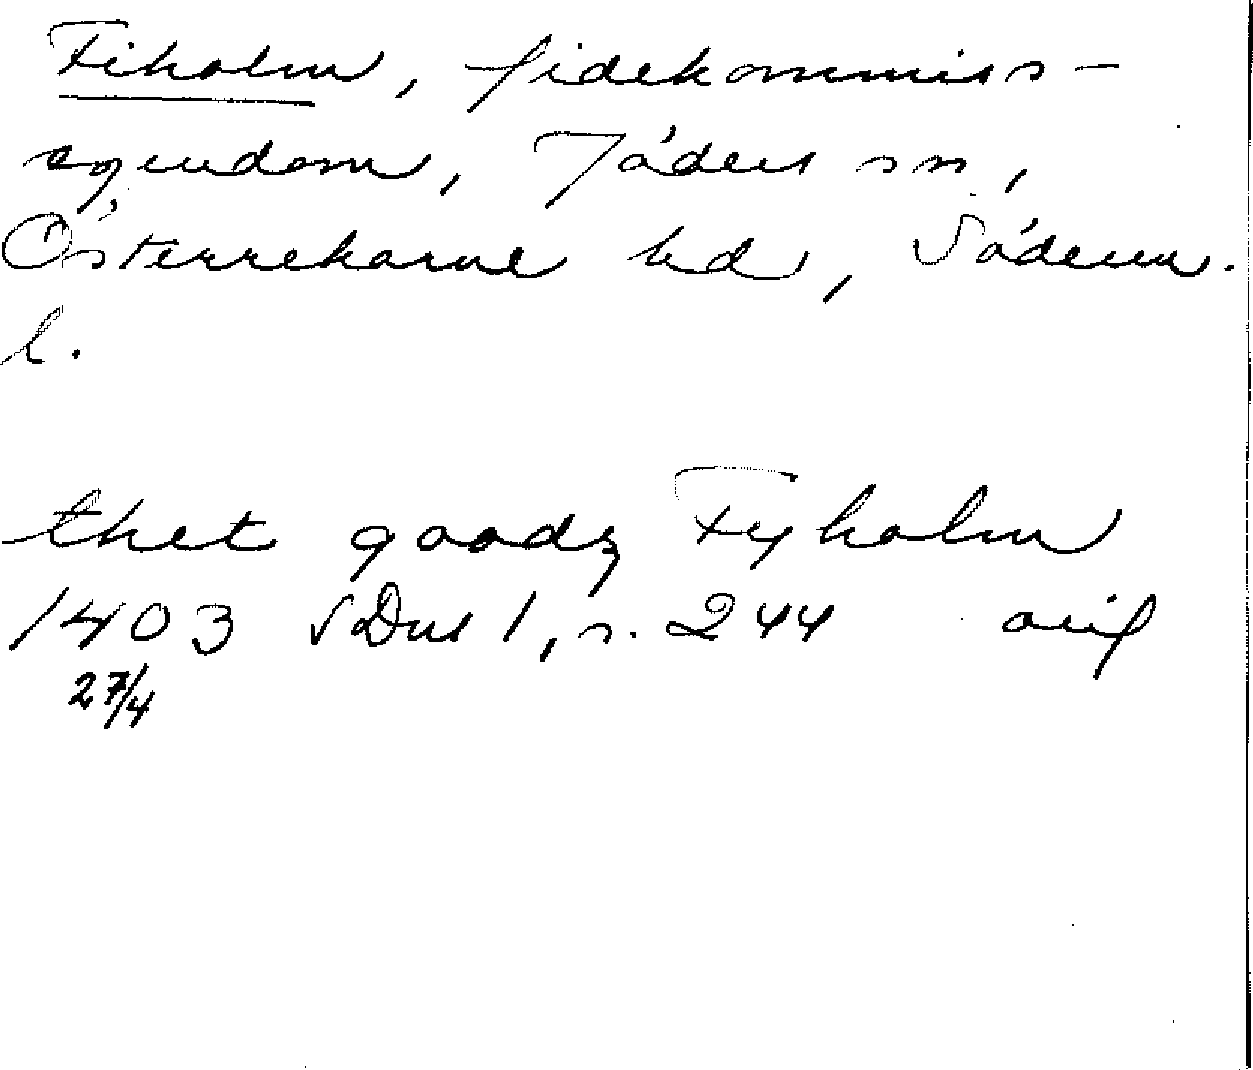 Fiholm, fideikommiss-
egendom, Jäders sn,
Österrekarne hd, Söderm.
l.
thet goodz Fyholm
1403 SDns 1, s. 244 avs
27/4